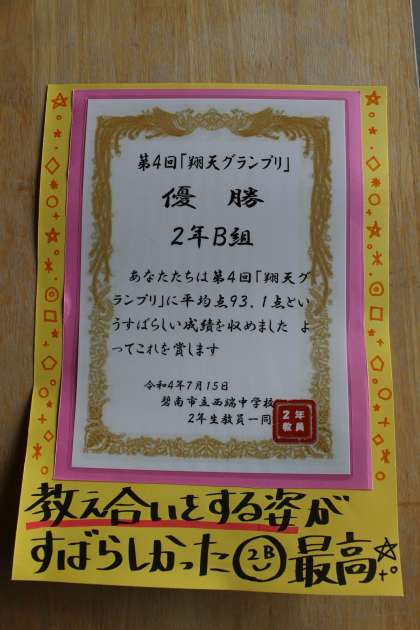 第4回「翔天グランプリ」
優勝
2年B組
あなたたちは第4回「翔天グ
ランプリ」に平均点93.1点とい
うすばらしい成績を収めました よ
ってこれを賞します
令和4年7月15日
碧南市立西端中学校
2年生教員一同
2年
教員
教え合いをする姿が
すばらしかった 2B 最高